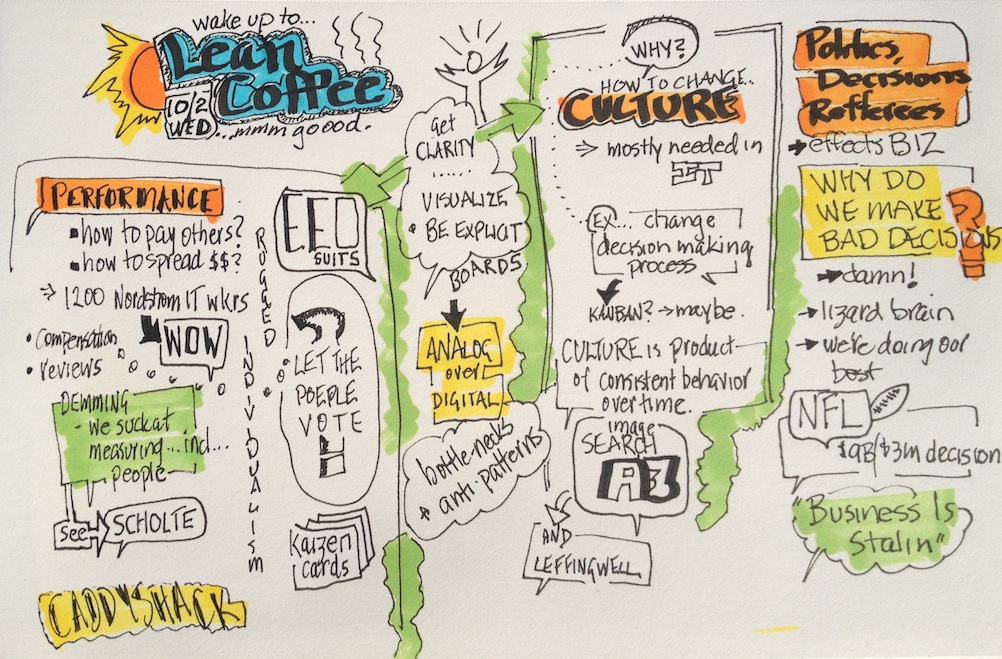 wake up to...
Lean
Coffee
10/2
WED
...mmm good.
PERFORMANCE
how to pay others?
how to spread $$?
1200 Nordstrom IT wkrs
WOW
• Compensation
• reviews
DEMMING
- we suck at
measuring...incl...
people
see
SCHOLTE
CADDYSHACK
RUGGED
INDIVIDUALISM
CEO
SUITS
LET THE
POEPLE
VOTE
Kaizen
cards
get
CLARITY
......
VISUALIZE
• BE EXPLICIT
BOARDS
ANALOG
over
DIGITAL
bottle-necks
anti-patterns
WHY?
HOW TO CHANGE..
CULTURE
mostly needed in
IT
EX... change
decision making
process
KANBAN? → maybe.
CULTURE is product
of consistent behavior
overtime.
image
SEARCH
A3
AND
LEFFINGWELL
Politics,
Decisions
Refferees
effects BIZ
WHY DO
WE MAKE
BAD DECISIONS
?
damn!
lizard brain
we're doing our
best
NFL
$9B/$3m decision
"Business Is
Stalin"